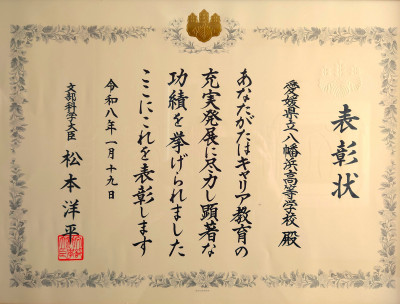 表彰状
愛媛県立八幡浜高等学校 殿
あなたがたはキャリア教育の
充実発展に尽力し顕著な
功績を挙げられました
ここにこれを表彰します
令和八年一月十九日
文部科学大臣 松本洋平